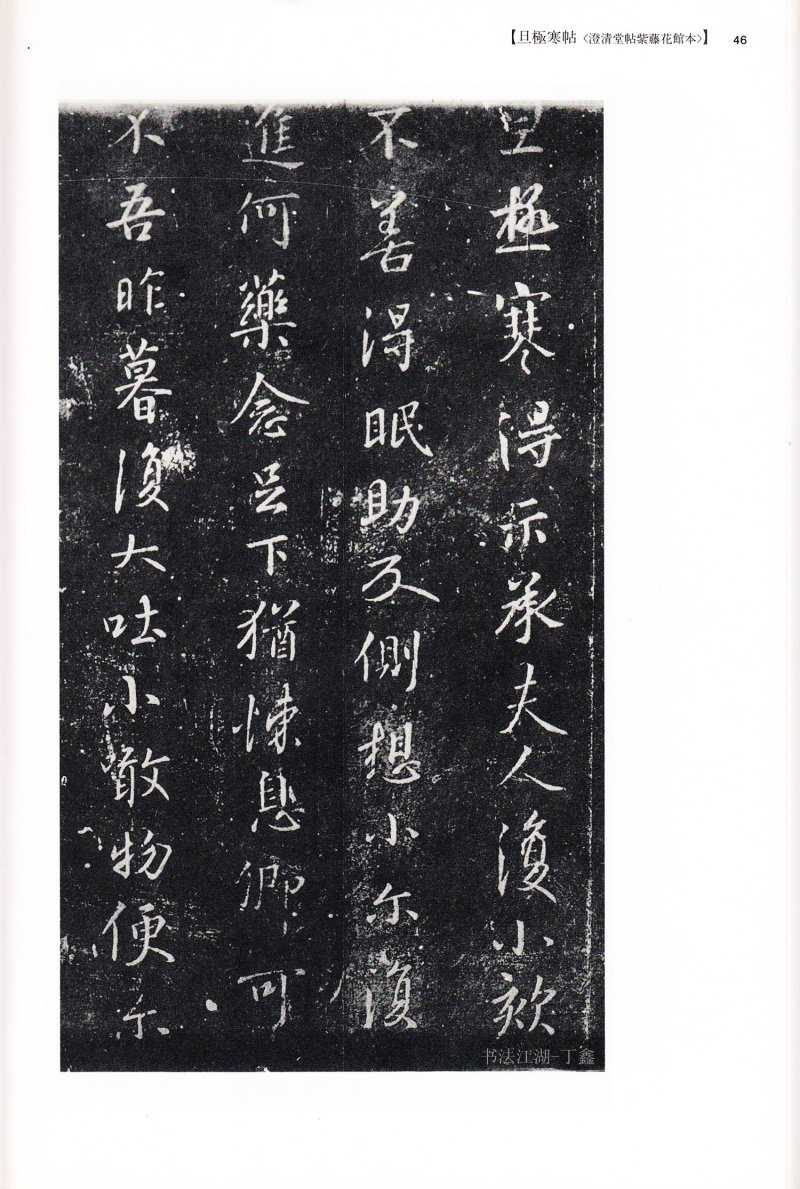 【旦極寒帖〈澄清堂帖紫藤花館本〉】 46
旦極寒得示承夫人復小欬
不善得眠助反側想小尔復
進何藥念足下猶悚息卿可
不吾昨暮復大吐小噉物便尔
书法江湖-丁鑫